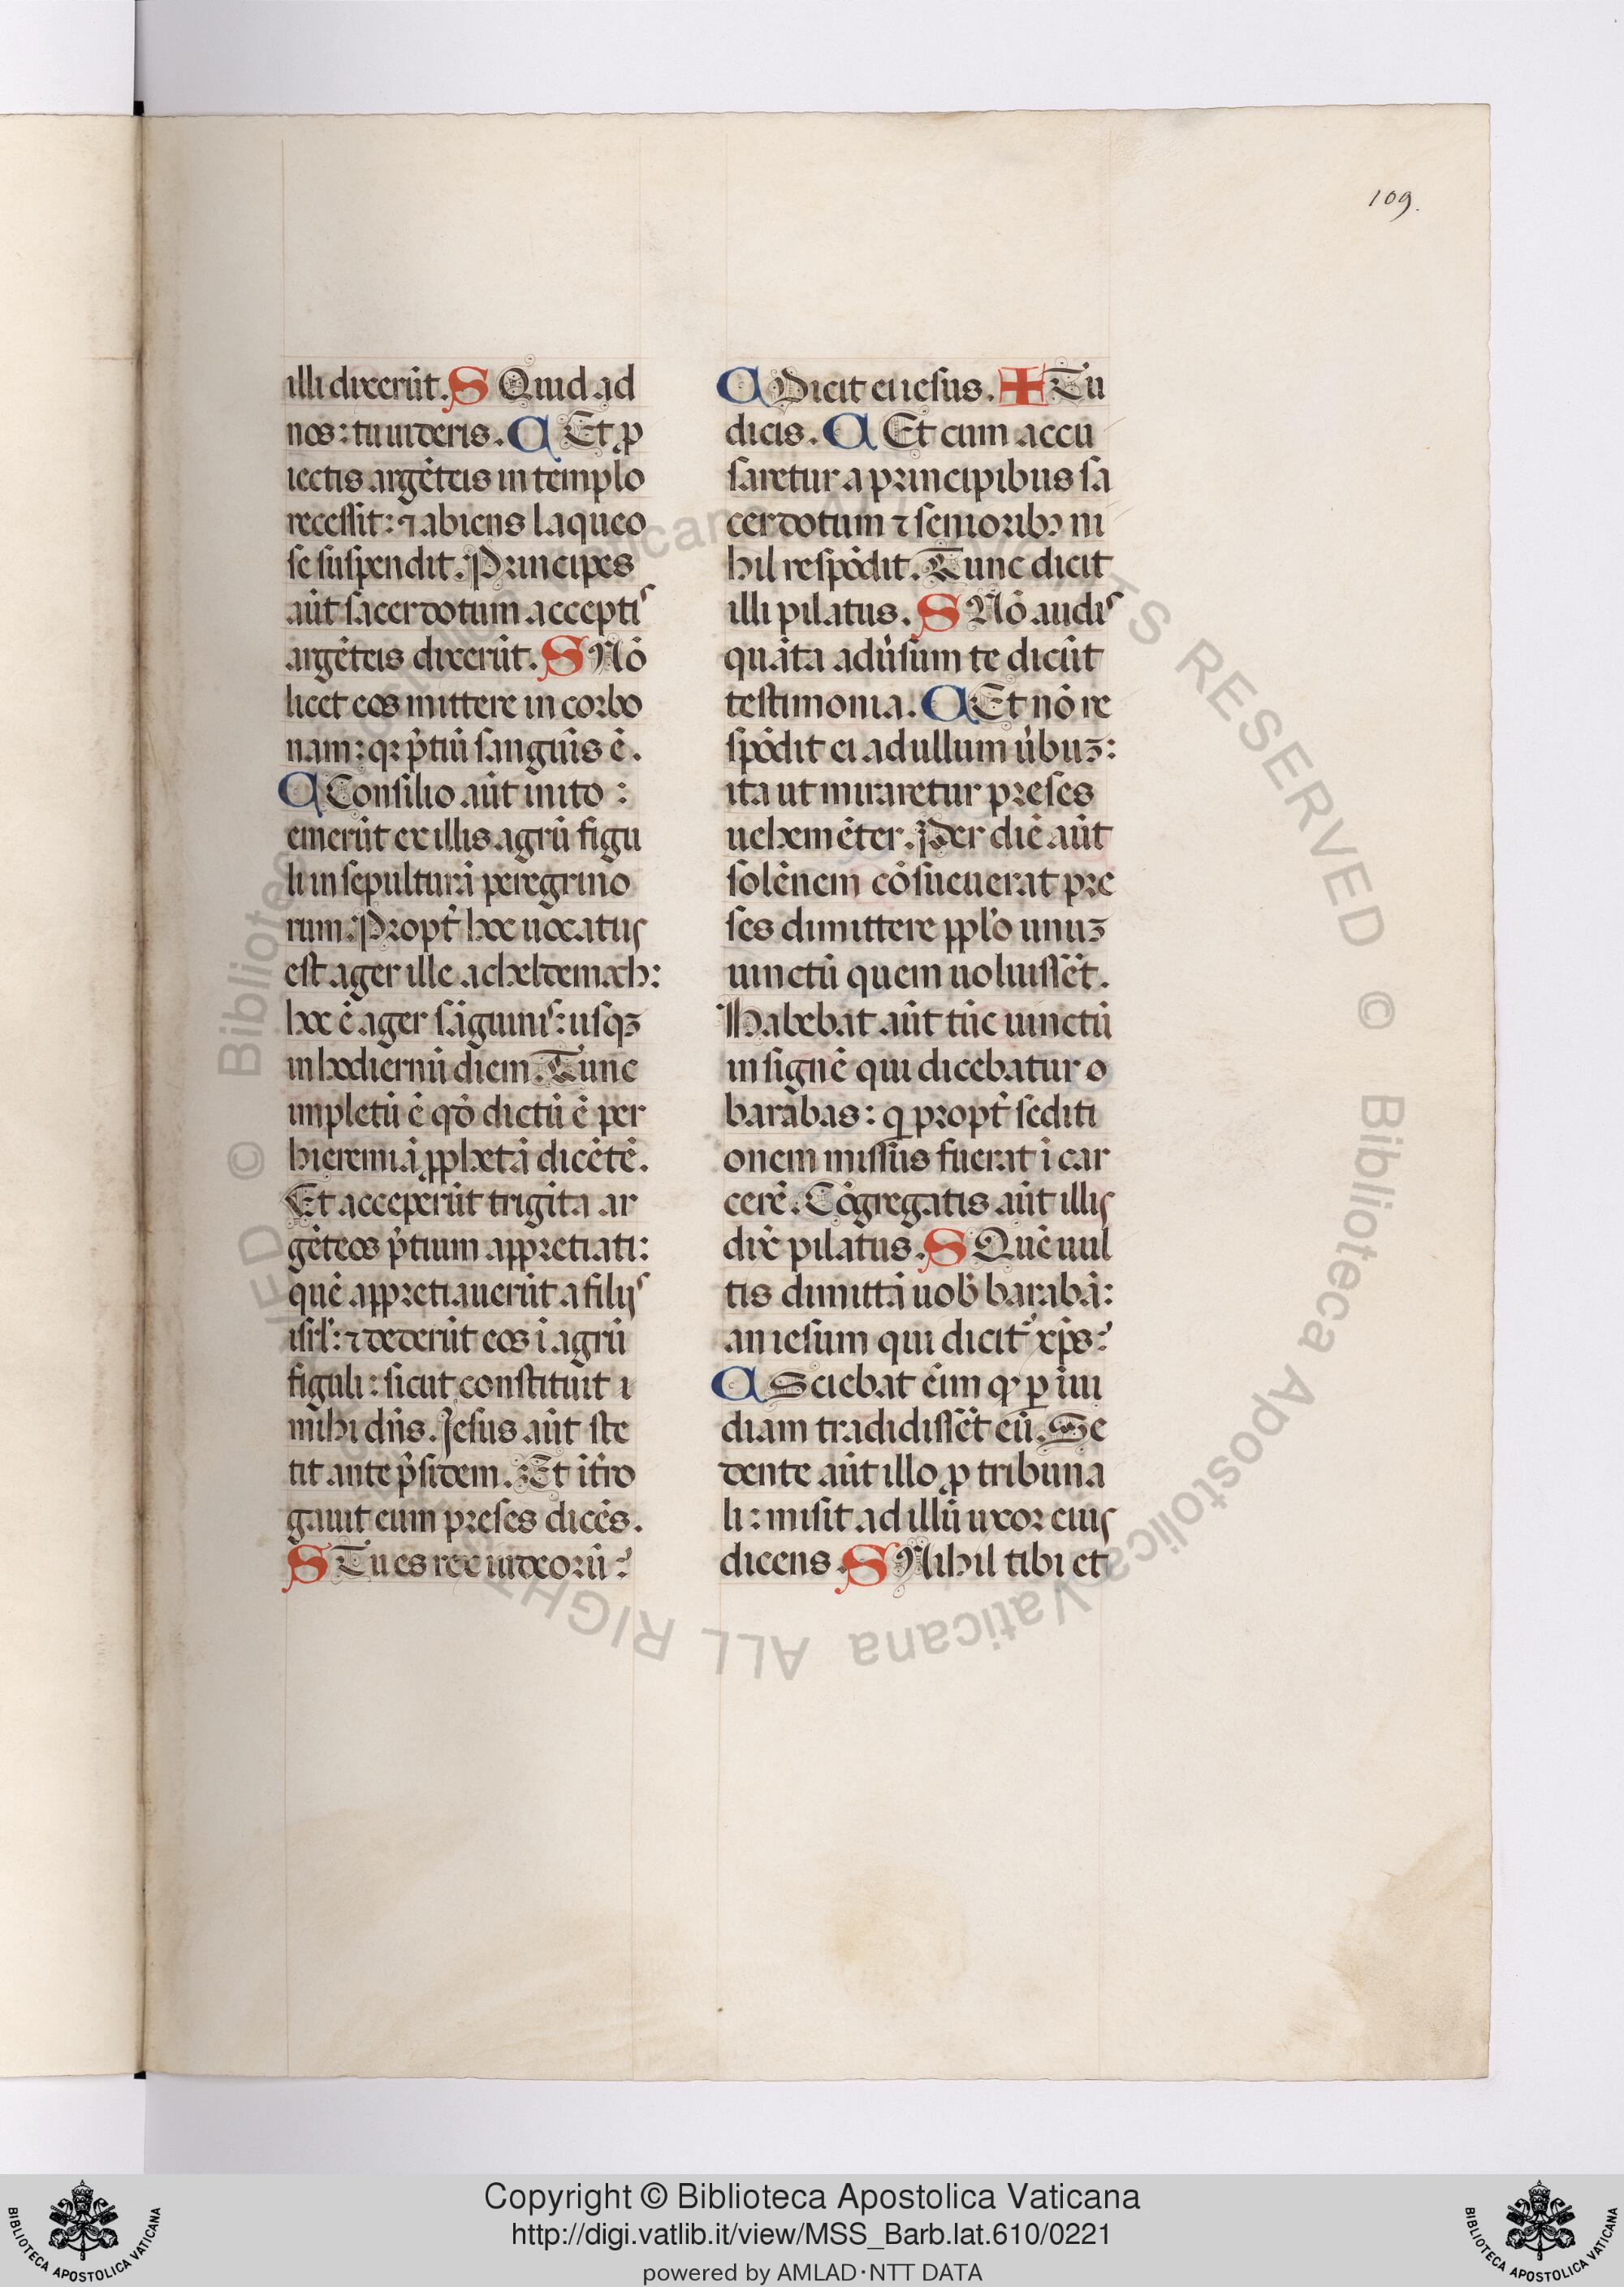 109.
illi dixerūt. S Quid ad
nos: tu uideris. C Et ꝓ
iectis argēteis in templo
recessit: ⁊ abiens laqueo
se suspendit. Principes
aūt sacerdotum acceptis
argēteis dixerūt. S Nō
licet eos mittere in corbo
nam: qꝛ p̄tiū sanguīs ē.
C Consilio aūt inito:
emerūt ex illis agrū figu
li in sepulturā peregrino
rum. Propt̄ hoc uocatus
est ager ille acheldemach:
hoc ē ager sāguinis: usqꝫ
in hodiernū diem. Tunc
impletū ē qō dictū ē per
hieremiā ꝓphetā dicētē.
Et acceperūt trigīta ar
gēteos p̄tium appretiati:
quē appretiauerūt a filijs
isrl̄: ⁊ dederūt eos ī agrū
figuli: sicut constituit
mihi dn̄s. Jesus aūt ste
tit ante p̄sidem. Et īt̄ro
gauit eum preses dicēs.
S Tu es rex iudeorū?
C Dicit ei iesus. ✚ Tu
dicis. C Et cum accu
saretur a principibus sa
cerdotum ⁊ senioribꝫ ni
hil respōdit. Tunc dicit
illi pilatus. S Nō audis
quāta adūsum te dicūt
testimonia. C Et nō re
spōdit ei ad ullum ūbuꝫ:
ita ut miraretur preses
uehemēter. Per diē aūt
solēnem cōsueuerat pre
ses dimittere pplo unuꝫ
uinctū quem uoluissēt.
Habebat aūt tūc uinctū
insignē qui dicebatur
barābas: q propt̄ sediti
onem missus fuerat ī car
cerē. Cōgregatis aūt illis
dix̄ pilatus. S Quē uul
tis dimittā uob̄ barabā:
an iesum qui dicit᷑ xp̄s?
C Sciebat eīm qꝙ ꝑ iui
diam tradidissēt eū. Se
dente aūt illo ꝓ tribuna
li: misit ad illū uxor eius
dicens. S Nihil tibi et
© Biblioteca Apostolica Vaticana ALL RIGHTS RESERVED
Copyright © Biblioteca Apostolica Vaticana
http://digi.vatlib.it/view/MSS_Barb.lat.610/0221
powered by AMLAD·NTT DATA
BIBLIOTECA APOSTOLICA VATICANA
BIBLIOTECA APOSTOLICA VATICANA